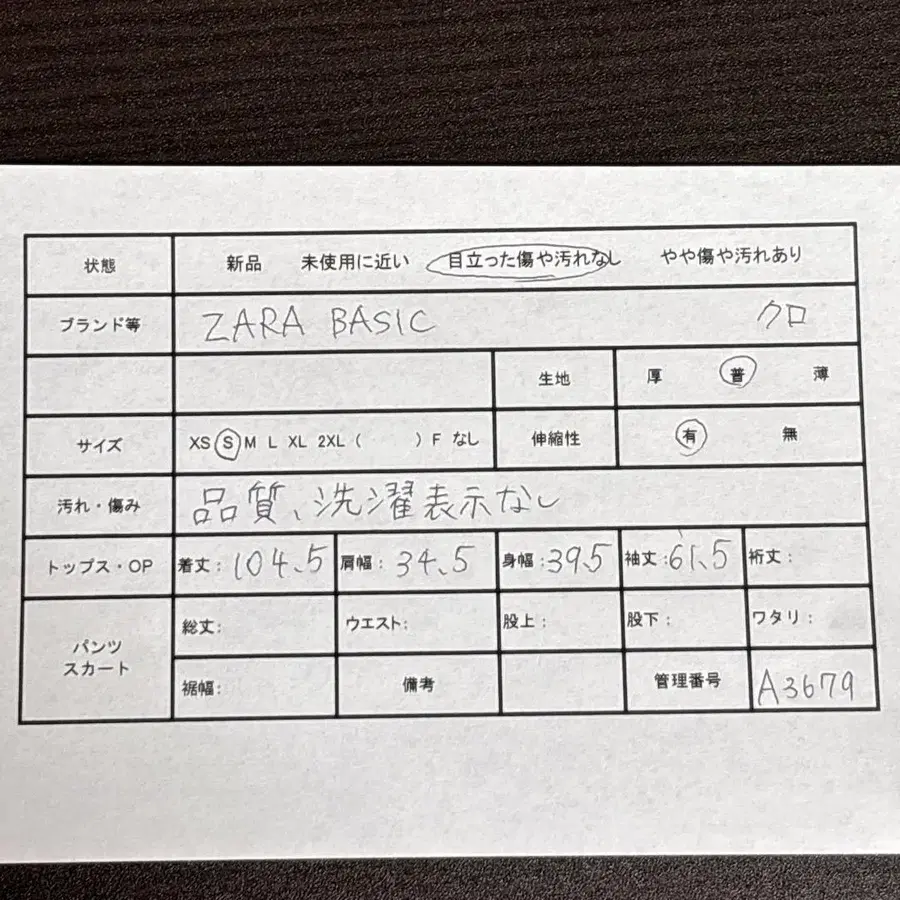 状態 新品 未使用に近い 目立った傷や汚れなし やや傷や汚れあり
ブランド等 ZARA BASIC クロ
生地 厚 普 薄
サイズ XS S M L XL 2XL ( ) F なし 伸縮性 有 無
汚れ・傷み 品質、洗濯表示なし
トップス・OP 着丈: 104.5 肩幅: 34.5 身幅: 39.5 袖丈: 61.5 裄丈:
パンツ
スカート
総丈: ウエスト: 股上: 股下: ワタリ:
裾幅: 備考 管理番号 A3679